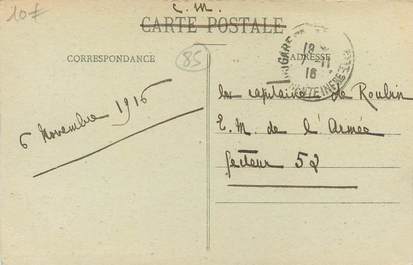 10F
C. M.
CARTE POSTALE
CORRESPONDANCE
85
ADRESSE
18
7-11
16
6 Novembre 1916
capitaine de Roubin
E. M. de l'Armée
secteur 52